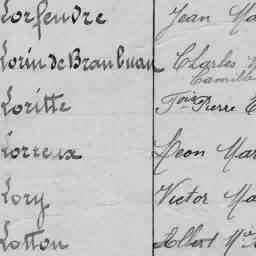 Lorfendre Jean Ma
Lorin de Branbuan Charles
Camille
Loritte Fois Pierre
Lorreux Leon Mar
Lory Victor Ma
Lotton Albert Mie